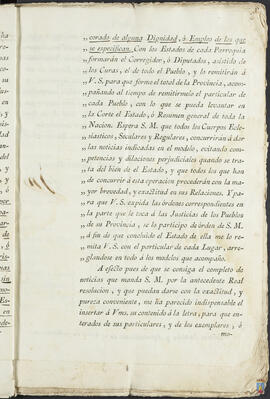 „ corado de alguna Dignidad, ó Empleo de los que
„ se especifican. Con los Estados de cada Parroquia
„ formarán el Corregidor, ó Diputados, asistido de
„ los Curas, el de todo el Pueblo, y lo remitirá á
„ V. S. para que forme el total de la Provincia, acom-
„ pañando al tiempo de remitirmelo el particular de
„ cada Pueblo, con lo que se pueda levantar en
„ la Corte el Estado, ó Resumen general de toda la
„ Nacion. Espera S. M. que todos los Cuerpos Ecle-
„ siasticos, Seculares y Regulares, concurrirán á dar
„ las noticias indicadas en el modelo, evitando com-
„ petencias y dilaciones perjudiciales quando se tra-
„ ta del bien de el Estado, y que todos los que han
„ de concurrir á esta operacion procederán con la ma-
„ yor brevedad, y exactitud en sus Relaciones. Y pa-
„ ra que V. S. expida las órdenes correspondientes en
„ la parte que le toca á las Justicias de los Pueblos
„ de su Provincia, se lo participo de órden de S. M.
„ á fin de que concluido el Estado de ella me lo re-
„ mita V. S. con el particular de cada Lugar, arre-
„ glandose en todo á los modelos que acompaño.
A efecto pues de que se consiga el completo de
noticias que manda S. M. por la antecedente Real
resolucion, y que puedan darse con la exactitud, y
pureza conveniente, me ha parecido indispensable el
insertar á Vms. su contenido á la letra, para que en-
terados de sus particulares, y de los exemplares, ó
mo-